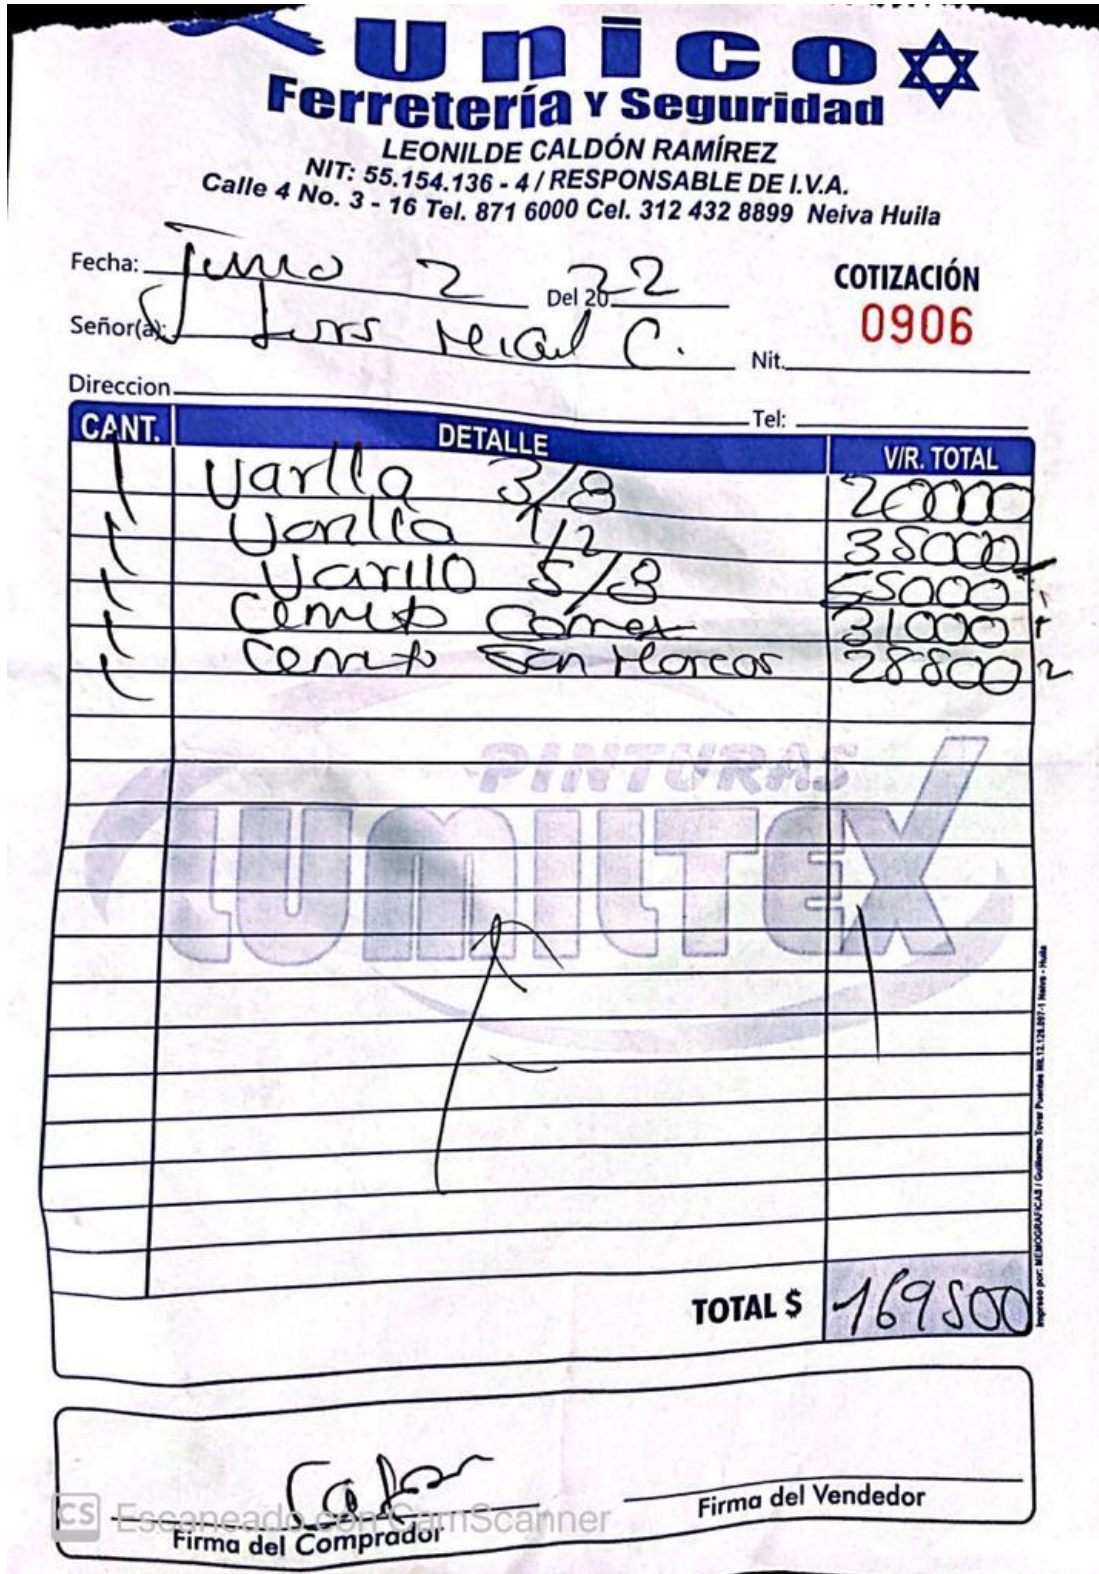 Unico
Ferretería Y Seguridad
LEONILDE CALDÓN RAMÍREZ
NIT: 55.154.136 - 4 / RESPONSABLE DE I.V.A.
Calle 4 No. 3 - 16 Tel. 871 6000 Cel. 312 432 8899 Neiva Huila
Fecha: Junio 2 Del 20 22
COTIZACIÓN
0906
Señor(a): Luis C. Nit.
Direccion Tel:
CANT. DETALLE V/R. TOTAL
1 Varlla 3/8 20000
1 Varlla 1/2 35000
1 Varillo 5/8 55000
1 Cemento Cemex 31000
1 Cemento San Marcos 28800
PINTURAS
LUMILTEX
TOTAL $ 169800
Impreso por: MEMOGRAFICAS / Guillermo Tovar Puentes Nit. 12.126.897-1 Neiva - Huila
CS Escaneado con CamScanner
Firma del Comprador
Firma del Vendedor